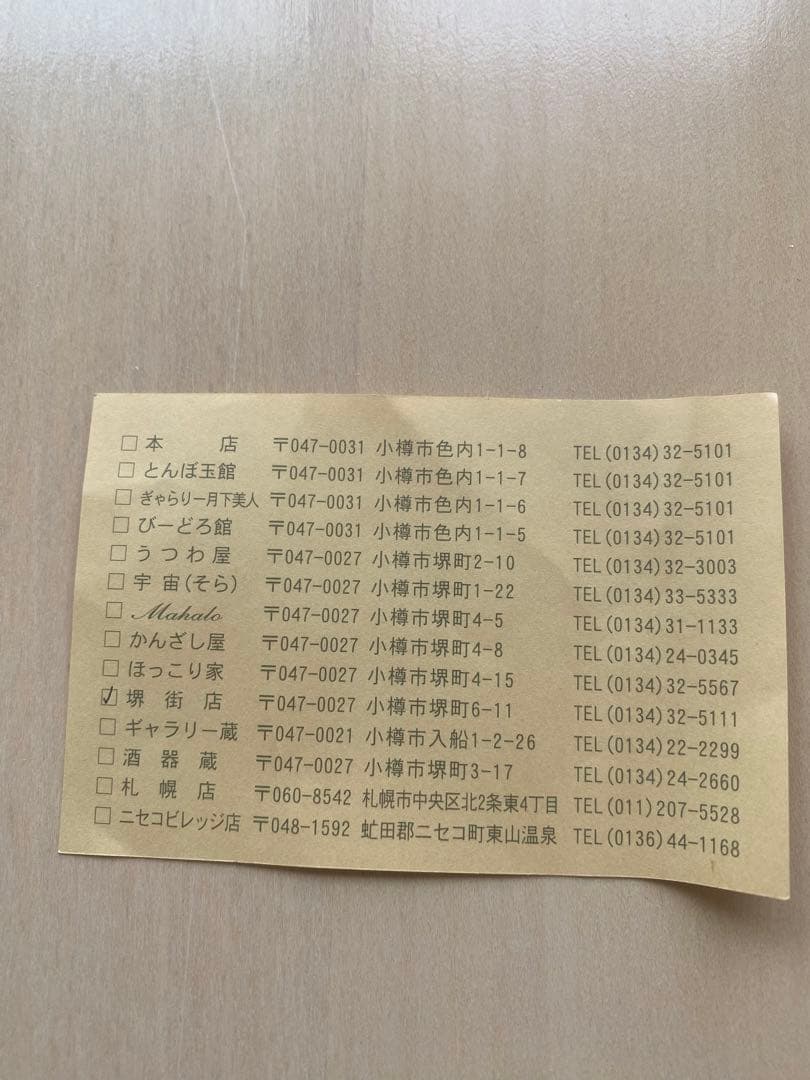 □ 本店 〒047-0031 小樽市色内1-1-8 TEL(0134)32-5101
□ とんぼ玉館 〒047-0031 小樽市色内1-1-7 TEL(0134)32-5101
□ ぎゃらりー月下美人 〒047-0031 小樽市色内1-1-6 TEL(0134)32-5101
□ びーどろ館 〒047-0031 小樽市色内1-1-5 TEL(0134)32-5101
□ うつわ屋 〒047-0027 小樽市堺町2-10 TEL(0134)32-3003
□ 宇宙(そら) 〒047-0027 小樽市堺町1-22 TEL(0134)33-5333
□ Mahalo 〒047-0027 小樽市堺町4-5 TEL(0134)31-1133
□ かんざし屋 〒047-0027 小樽市堺町4-8 TEL(0134)24-0345
□ ほっこり家 〒047-0027 小樽市堺町4-15 TEL(0134)32-5567
☑ 堺街店 〒047-0027 小樽市堺町6-11 TEL(0134)32-5111
□ ギャラリー蔵 〒047-0021 小樽市入船1-2-26 TEL(0134)22-2299
□ 酒器蔵 〒047-0027 小樽市堺町3-17 TEL(0134)24-2660
□ 札幌店 〒060-8542 札幌市中央区北2条東4丁目 TEL(011)207-5528
□ ニセコビレッジ店 〒048-1592 虻田郡ニセコ町東山温泉 TEL(0136)44-1168